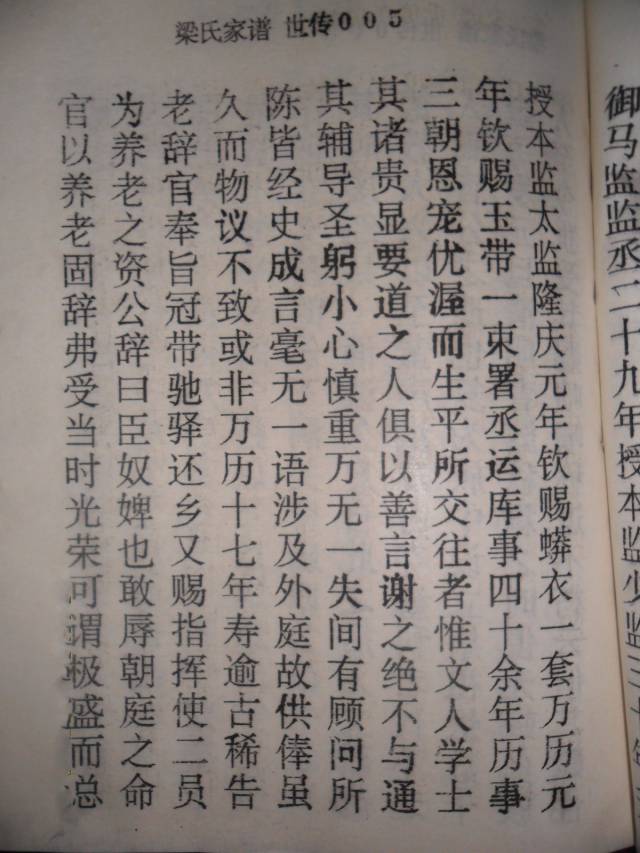 梁氏家谱 世传005
御马监监丞二十九年授本监少监三十
授本监太监隆庆元年钦赐蟒衣一套万历元
年钦赐玉带一束署丞运库事四十余年历事
三朝恩宠优渥而生平所交往者惟文人学士
其诸贵显要道之人俱以善言谢之绝不与通
其辅导圣躬小心慎重万无一失间有顾问所
陈皆经史成言毫无一语涉及外庭故供俸虽
久而物议不致或非万历十七年寿逾古稀告
老辞官奉旨冠带驰驿还乡又赐指挥使二员
为养老之资公辞曰臣奴婢也敢辱朝庭之命
官以养老固辞弗受当时光荣可谓极盛而总